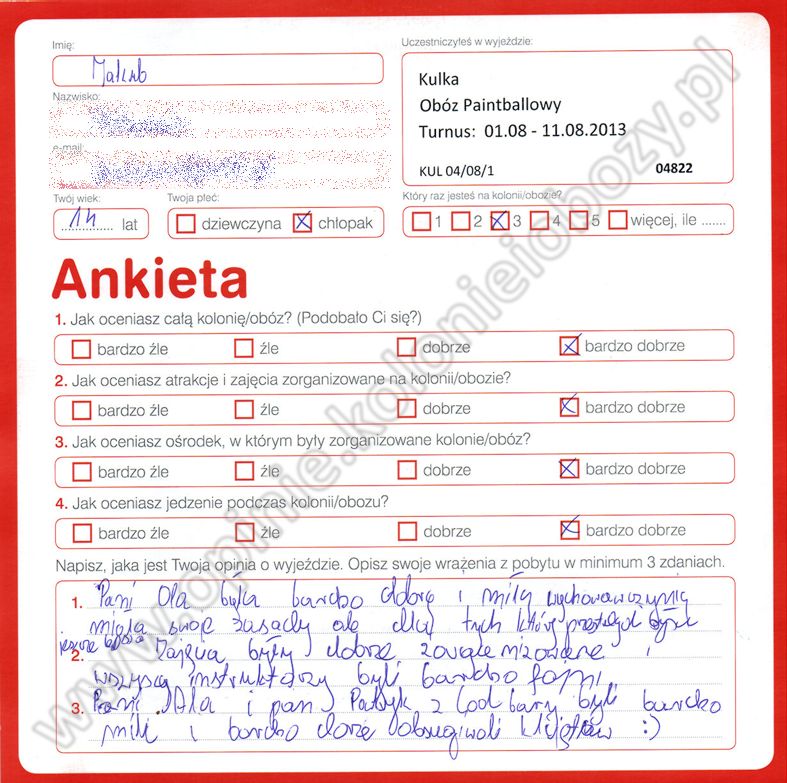 Imię:
Jakub
Uczestniczyłeś w wyjeździe:
Kulka
Obóz Paintballowy
Turnus: 01.08 - 11.08.2013
KUL 04/08/1 04822
Nazwisko:
e-mail:
Twój wiek:
14 lat
Twoja płeć:
dziewczyna chłopak
Który raz jesteś na kolonii/obozie?
1 2 3 4 5 więcej, ile .......
Ankieta
1. Jak oceniasz całą kolonię/obóz? (Podobało Ci się?)
bardzo źle źle dobrze bardzo dobrze
2. Jak oceniasz atrakcje i zajęcia zorganizowane na kolonii/obozie?
bardzo źle źle dobrze bardzo dobrze
3. Jak oceniasz ośrodek, w którym były zorganizowane kolonie/obóz?
bardzo źle źle dobrze bardzo dobrze
4. Jak oceniasz jedzenie podczas kolonii/obozu?
bardzo źle źle dobrze bardzo dobrze
Napisz, jaka jest Twoja opinia o wyjeździe. Opisz swoje wrażenia z pobytu w minimum 3 zdaniach.
1. Pani Ola była bardzo dobrą i miłą wychowawczynią
miała swoje zasady ale dla tych którzy
jeszcze lepsza
2. Zajęcia były dobrze zorganizowane i
wszyscy instruktorzy byli bardzo fajni
3. Pani Ala i pan Patryk z Cool bary byli bardzo
mili i bardzo dobrze obsługiwali klijętów :)
www.opinie.kolonieiobozy.pl